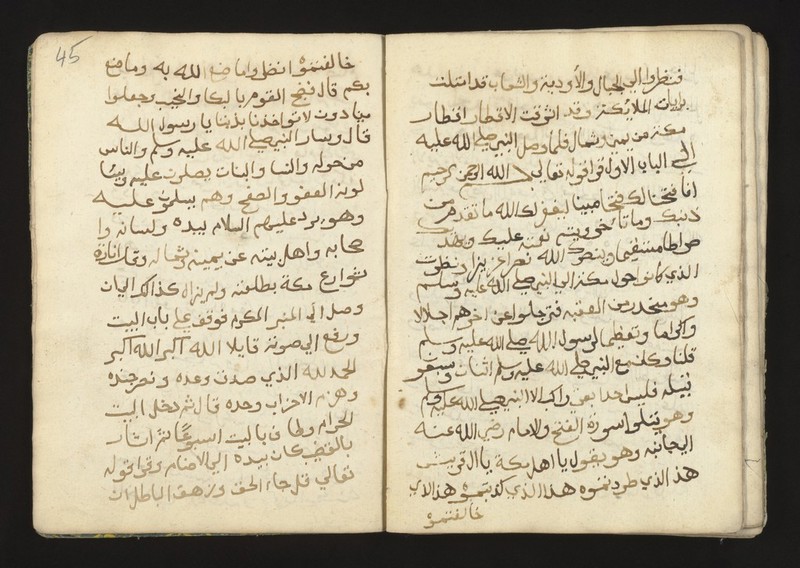 فنظروا الي الجبال والأودية والشعاب قد امتلت
برايات الملائكة وقد اشرقت الاقطار اقطار
مكة من يمين وشمال فلما وصل النبي صلي الله عليه
الي الباب الاول قرا قوله تعالي بسم الله الرحمن الرحيم
انا فتحنا لك فتحا مبينا ليغفر لك الله ما تقدم من
ذنبك وما تأخر ويتم نعمته عليك ويهديك
صراطا مستقيما وينصرك الله نصرا عزيزا ونظرت
الذي كانوا حول مكة الي النبي صلي الله عليه وسلم
وهو منحدر من العقبة فترجلوا عن اخرهم اجلالا
واكراما وتعظيما لرسول الله صلي الله عليه وسلم
قلنا وكان مع النبي صلي الله عليه وسلم اثنان وسبعو
قبيله فليس احدا بقي راكب الا النبي صلي الله عليه وسلم
وهو يتلوا سورة الفتح والامام رضي الله عنه
الي جانبه وهو يقول يا اهل مكة يا ال قريش
هذا الذي طردتموه هذا الذي كذبتموه هذا الذي
خالفتموا
45
خالفتموا انظروا ما صنع الله به وما صنع
بكم قال فضج القوم بالبكا والنحيب وجعلوا
ينادون لا تواخذنا بذنبنا يا رسول الله
قال وسار النبي صلي الله عليه وسلم والناس
من حوله والنسا والبنات يصلون عليه ويسا
لونه العفو والصفح وهم يسلمون عليه
وهو يرد عليهم السلام بيده ولسانه وا
صحابه واهل بيته عن يمينه وشماله وقد انارة
شوارع مكة بطلعته ولم يزاله كذالك الي ان
وصل الي المنبر المكرم فوقف علي باب البيت
ورفع الي صوته قايلا الله اكبر الله اكبر
الحمد لله الذي صدق وعده ونصر جنده
وهزم الاحزاب وحده قال ثم دخل البيت
الحرام وطاف بالبيت اسبوعًا ثم اشار
بالقضيب كان بيده الي الاصنام وقرا قوله
تعالي قل جاء الحق وزهق الباطل ان